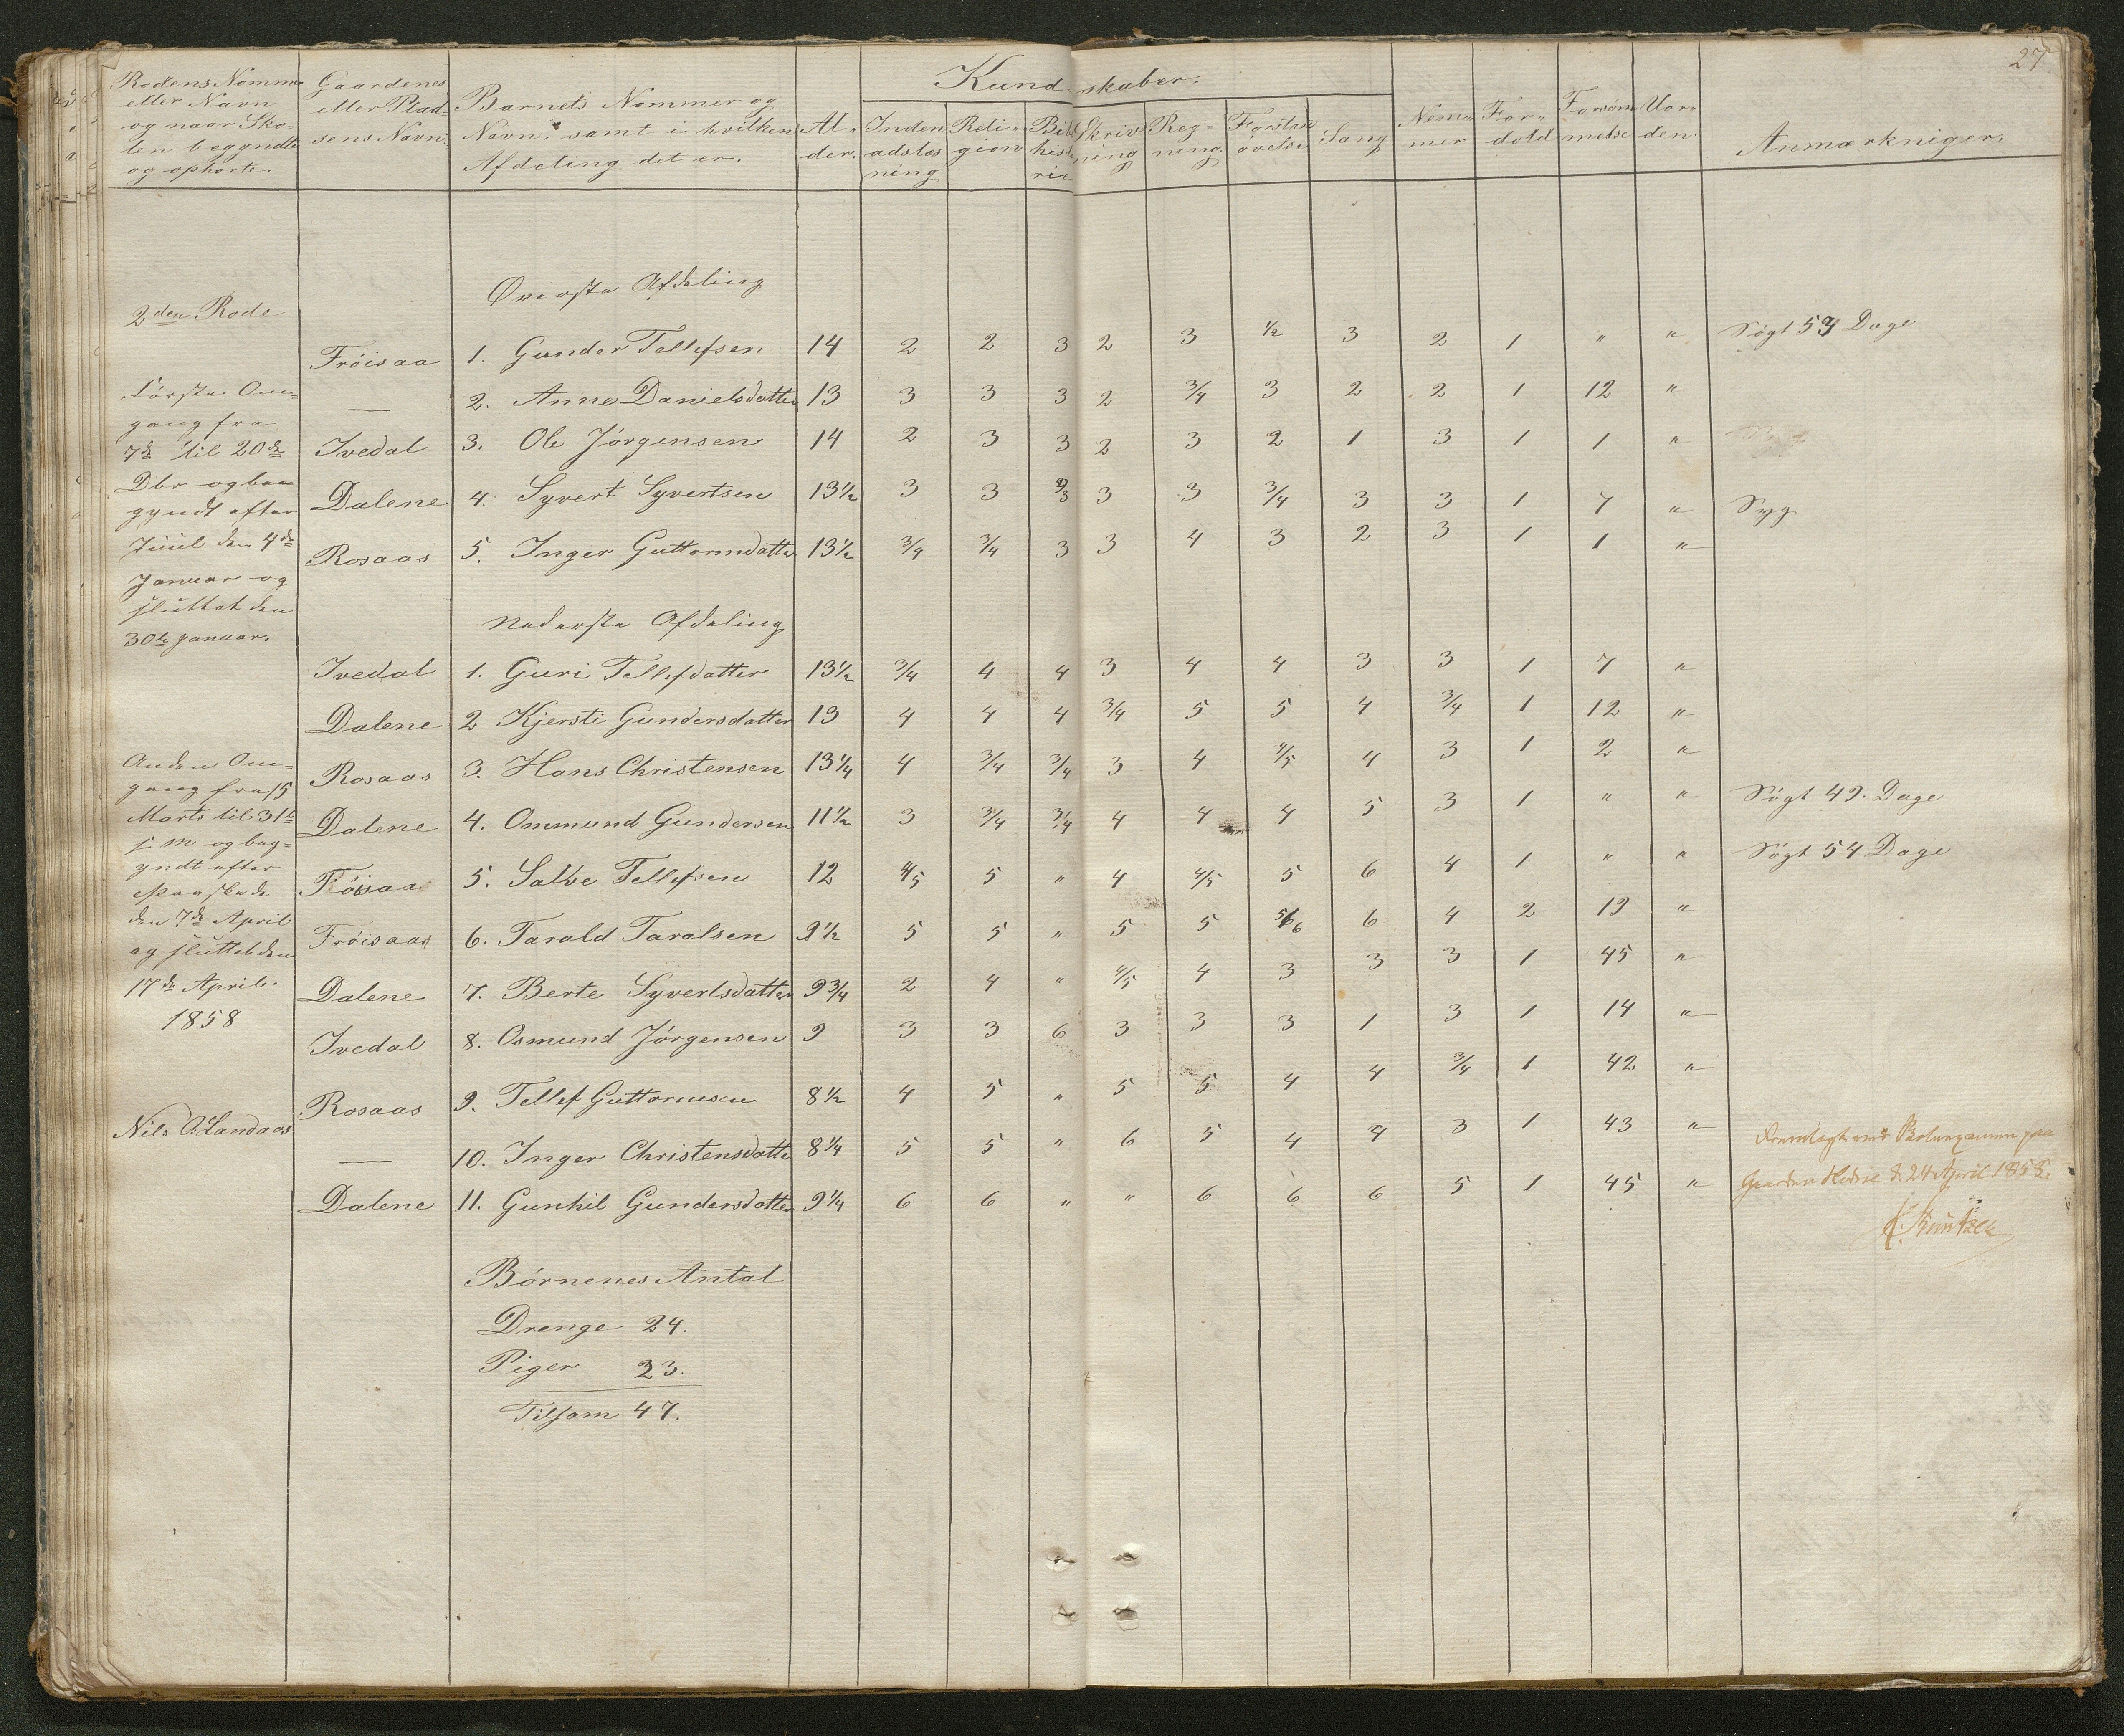 27
Rodens Nommer eller Navn og naar Skolen begyndte og ophørte. | Gaardenes eller Pladsens Navn. | Barnets Nommer og Navn, samt i hvilken Afdeling det er. | Alder. | Kundskaber: Indenadslæsning | Religion | Bibelhistorie | Skrivning | Regning. | Forstandøvelse | Sang | Nemmer | Forhold | Forsømmelse | Uorden. | Anmærkniger.
Øverste Afdeling
2den Rode
Fröisaa | 1. Gunder Tellefsen | 14 | 2 | 2 | 3 | 2 | 3 | 1/2 | 3 | 2 | 1 | " | " | Søgt Dage
— | 2. Anne Danielsdatter | 13 | 3 | 3 | 3 | 2 | 3/4 | 3 | 2 | 2 | 1 | 12 | "
Ivedal | 3. Ole Jörgensen | 14 | 2 | 3 | 3 | 2 | 3 | 2 | 1 | 3 | 1 | 1 | "
Dalene | 4. Syvert Syvertsen | 13½ | 3 | 3 | 2/3 | 3 | 3 | 3/4 | 3 | 3 | 1 | 7 | " | Syg
Rosaas | 5. Inger Guttormdatter | 13½ | 3/4 | 3/4 | 3 | 3 | 4 | 3 | 2 | 3 | 1 | 1 | "
Første Om=
gang fra
7de til 20de
Dbr og be
gyndt efter
Juul den 4de
Januar og
sluttet den
30te Januar.
Nederste Afdeling
Ivedal | 1. Guri Tellefdatter | 13½ | 3/4 | 4 | 4 | 3 | 4 | 4 | 3 | 3 | 1 | 7 | "
Dalene | 2 Kjersti Gundersdatter | 13 | 4 | 4 | 4 | 3/4 | 5 | 5 | 4 | 3/4 | 1 | 12 | "
Rosaas | 3. Hans Christensen | 13¼ | 4 | 3/4 | 3/4 | 3 | 4 | 4/5 | 4 | 3 | 1 | 2 | "
Dalene | 4. Ommund Gundersen | 11½ | 3 | 3/4 | 3/4 | 4 | 4 | 4 | 5 | 3 | 1 | " | " | Søgt 49. Dage
Föisaa | 5. Salve Tellefsen | 12 | 4/5 | 5 | " | 4 | 4/5 | 5 | 6 | 4 | 1 | " | " | Søgt 54 Dage
Fröisaas | 6. Tarald Taralsen | 9½ | 5 | 5 | " | 5 | 5 | 5/6 | 6 | 4 | 2 | 19 | "
Dalene | 7. Berte Syvertsdatter | 9¾ | 2 | 4 | " | 4/5 | 4 | 3 | 3 | 3 | 1 | 45 | "
Ivedal | 8. Osmund Jörgensen | 9 | 3 | 3 | 6 | 3 | 3 | 3 | 1 | 3 | 1 | 14 | "
Rosaas | 9. Tellef Guttormsen | 8½ | 4 | 5 | " | 5 | 5 | 4 | 4 | 3/4 | 1 | 42 | "
— | 10. Inger Christensdatte | 8¼ | 5 | 5 | " | 6 | 5 | 4 | 4 | 3 | 1 | 43 | "
Dalene | 11. Gunhil Gundersdatter | 9¼ | 6 | 6 | " | " | 6 | 6 | 6 | 5 | 1 | 45 | "
Anden Om=
gang fra 15
Marts til 31te
s m og beg=
yndt efter
Paaske
den 7de April
og sluttet den
17de April.
1858
Nils O. Landaas
Fremlagt ved paa
Gaarden d. 24 April 1858.
Knutzen
Börnenes Antal
Drenge 24.
Piger 23.
Tilsam 47.